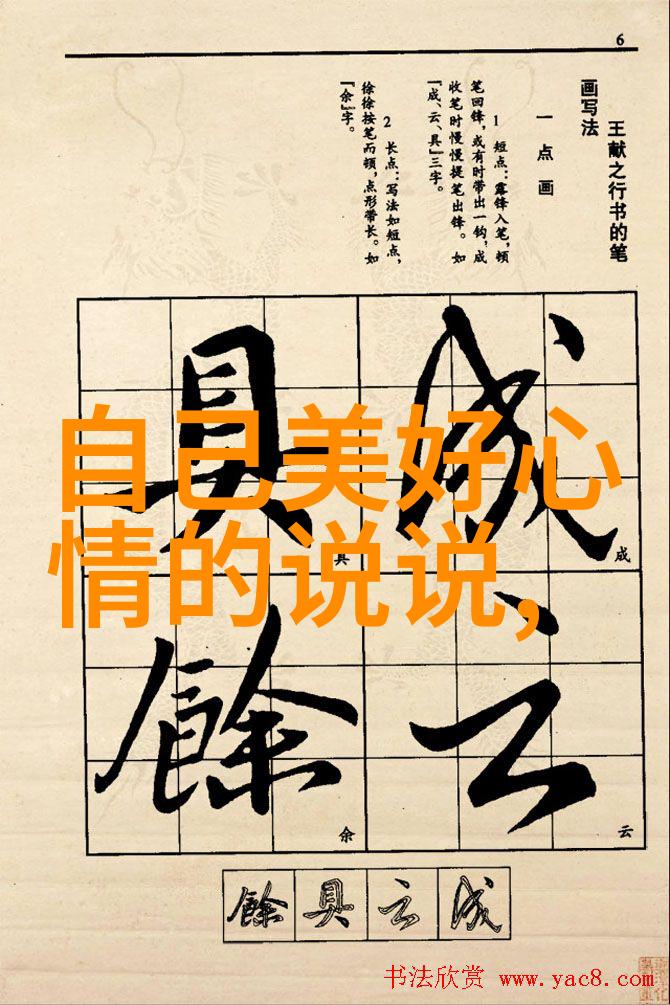 6
王献之行书的笔
画写法
一点画
1 短点：露锋入笔，顿
笔回锋，或有时带出一钩，成
收笔时慢慢提笔出锋。如
“成、云、具”三字。
2 长点：写法如短点，
徐徐按笔而顿，点形带长。如
“余”字。
成
具
自己美好心
情的说说，
成
具
云
餘
云
余
餘具云成
书法欣赏 www.yac8.com